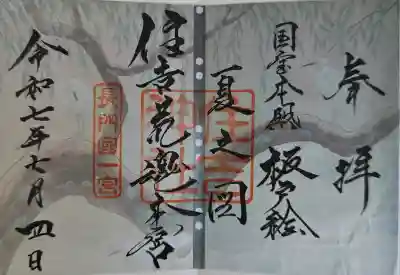 奉拝
国宝本殿 板戸絵
夏之図
住吉神社
住吉荒魂本宮
長門國一宮
令和七年七月四日